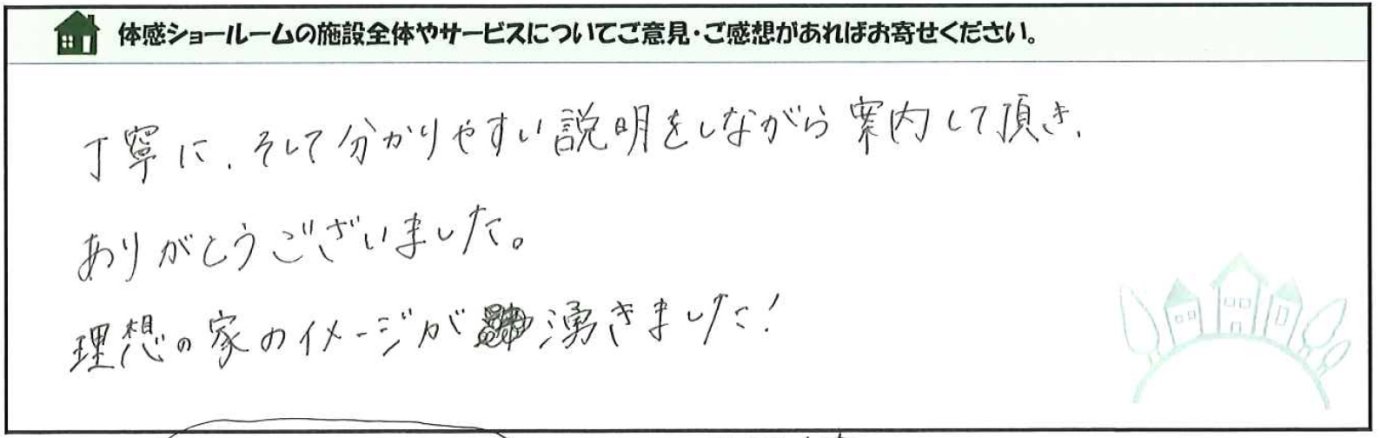 体感ショールームの施設全体やサービスについてご意見・ご感想があればお寄せください。
丁寧に、そして分かりやすい説明をしながら案内して頂き、
ありがとうございました。
理想の家のイメージが湧きました!